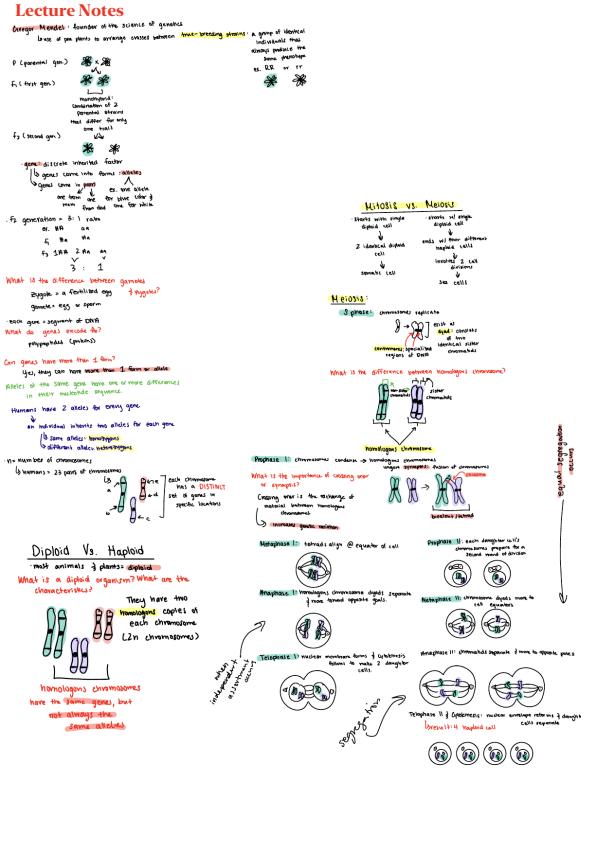 Lecture Notes
Gregor Mendel: founder of the science of genetics
use of pea plants to arrange crosses between true-breeding strains: a group of identical
individuals that
always produce the
same phenotype
ex. RR or rr
P (parental gen.)
F₁ (first gen.)
monohybrid:
combination of 2
parental strains
that differ for only
one trait
F₂ (second gen.)
gene: discrete inherited factor
genes come into forms: alleles
genes come in pairs
one from
mom
one
from dad
ex. one allele
for blue color &
one for white
F2 generation = 3:1 ratio
AA aa
F₁ Aa Aa
F₂ 1AA 2Aa aa
3 : 1
What is the difference between gametes
& zygotes?
zygote = a fertilized egg
gamete = egg or sperm
each gene = segment of DNA
What do genes encode for?
polypeptides (proteins)
Can genes have more than 1 form?
Yes, they can have more than 1 form or allele
Alleles of the same gene have one or more differences
in their nucleotide sequence.
Humans have 2 alleles for every gene
an individual inherits two alleles for each gene
same alleles: homozygous
different alleles: heterozygous
n = number of chromosomes
humans = 23 pairs of chromosomes
each chromosome
has a DISTINCT
set of genes in
specific locations
Diploid Vs. Haploid
most animals & plants = diploid
What is a diploid organism? What are the
characteristics?
They have two
homologous copies of
each chromosome
(2n chromosomes)
homologous chromosomes
have the same genes, but
not always the
same alleles
Mitosis vs. Meiosis
starts with single
diploid cell
2 identical diploid
cell
somatic cell
starts w/ single
diploid cell
ends w/ four different
haploid cells
involves 2 cell
divisions
sex cells
Meiosis:
S phase: chromosomes replicate
exist as
dyad: consists
of two
identical sister
chromatids
centromeres: specialized
regions of DNA
What is the difference between homologous chromosome?
non-sister
chromatids
sister
chromatids
homologous chromosome
Prophase I: chromosomes condense → homologous chromosomes
undergo synapsis: fusion of chromosomes
What is the importance of crossing over
or synapsis?
Crossing over is the exchange of
material between homologous
chromosomes
increases genetic variation
chiasma
bivalent/tetrad
Metaphase I: tetrads align @ equator of cell
Anaphase I: homologous chromosome dyads separate
& move toward opposite poles.
when
independent
assortment
occurs
Telophase I: nuclear membrane forms & cytokinesis
follows to make 2 daughter
cells.
segregation
Prophase II: each daughter cell's
chromosomes prepare for a
second round of division
Metaphase II: chromosomes dyads move to
cell equators
Anaphase II: chromatids separate & move to opposite poles
Telophase II & Cytokinesis: nuclear envelope reforms & daughter
cells separate
result: 4 haploid cell